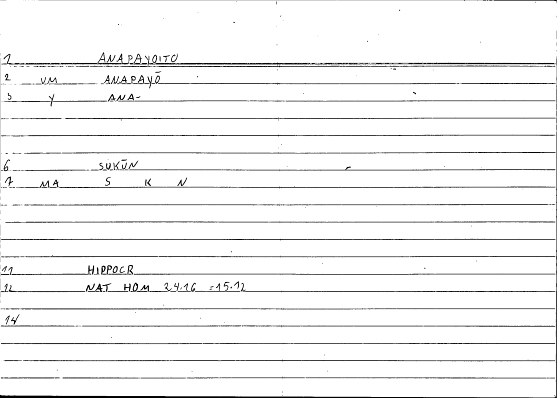 1 ANAPAYOITO
2 VM ANAPAYŌ
3 Y ANA-
6 SUKŪN
7 MA S K N
11 HIPPOCR
12 NAT HOM 24.16 =15.12
14